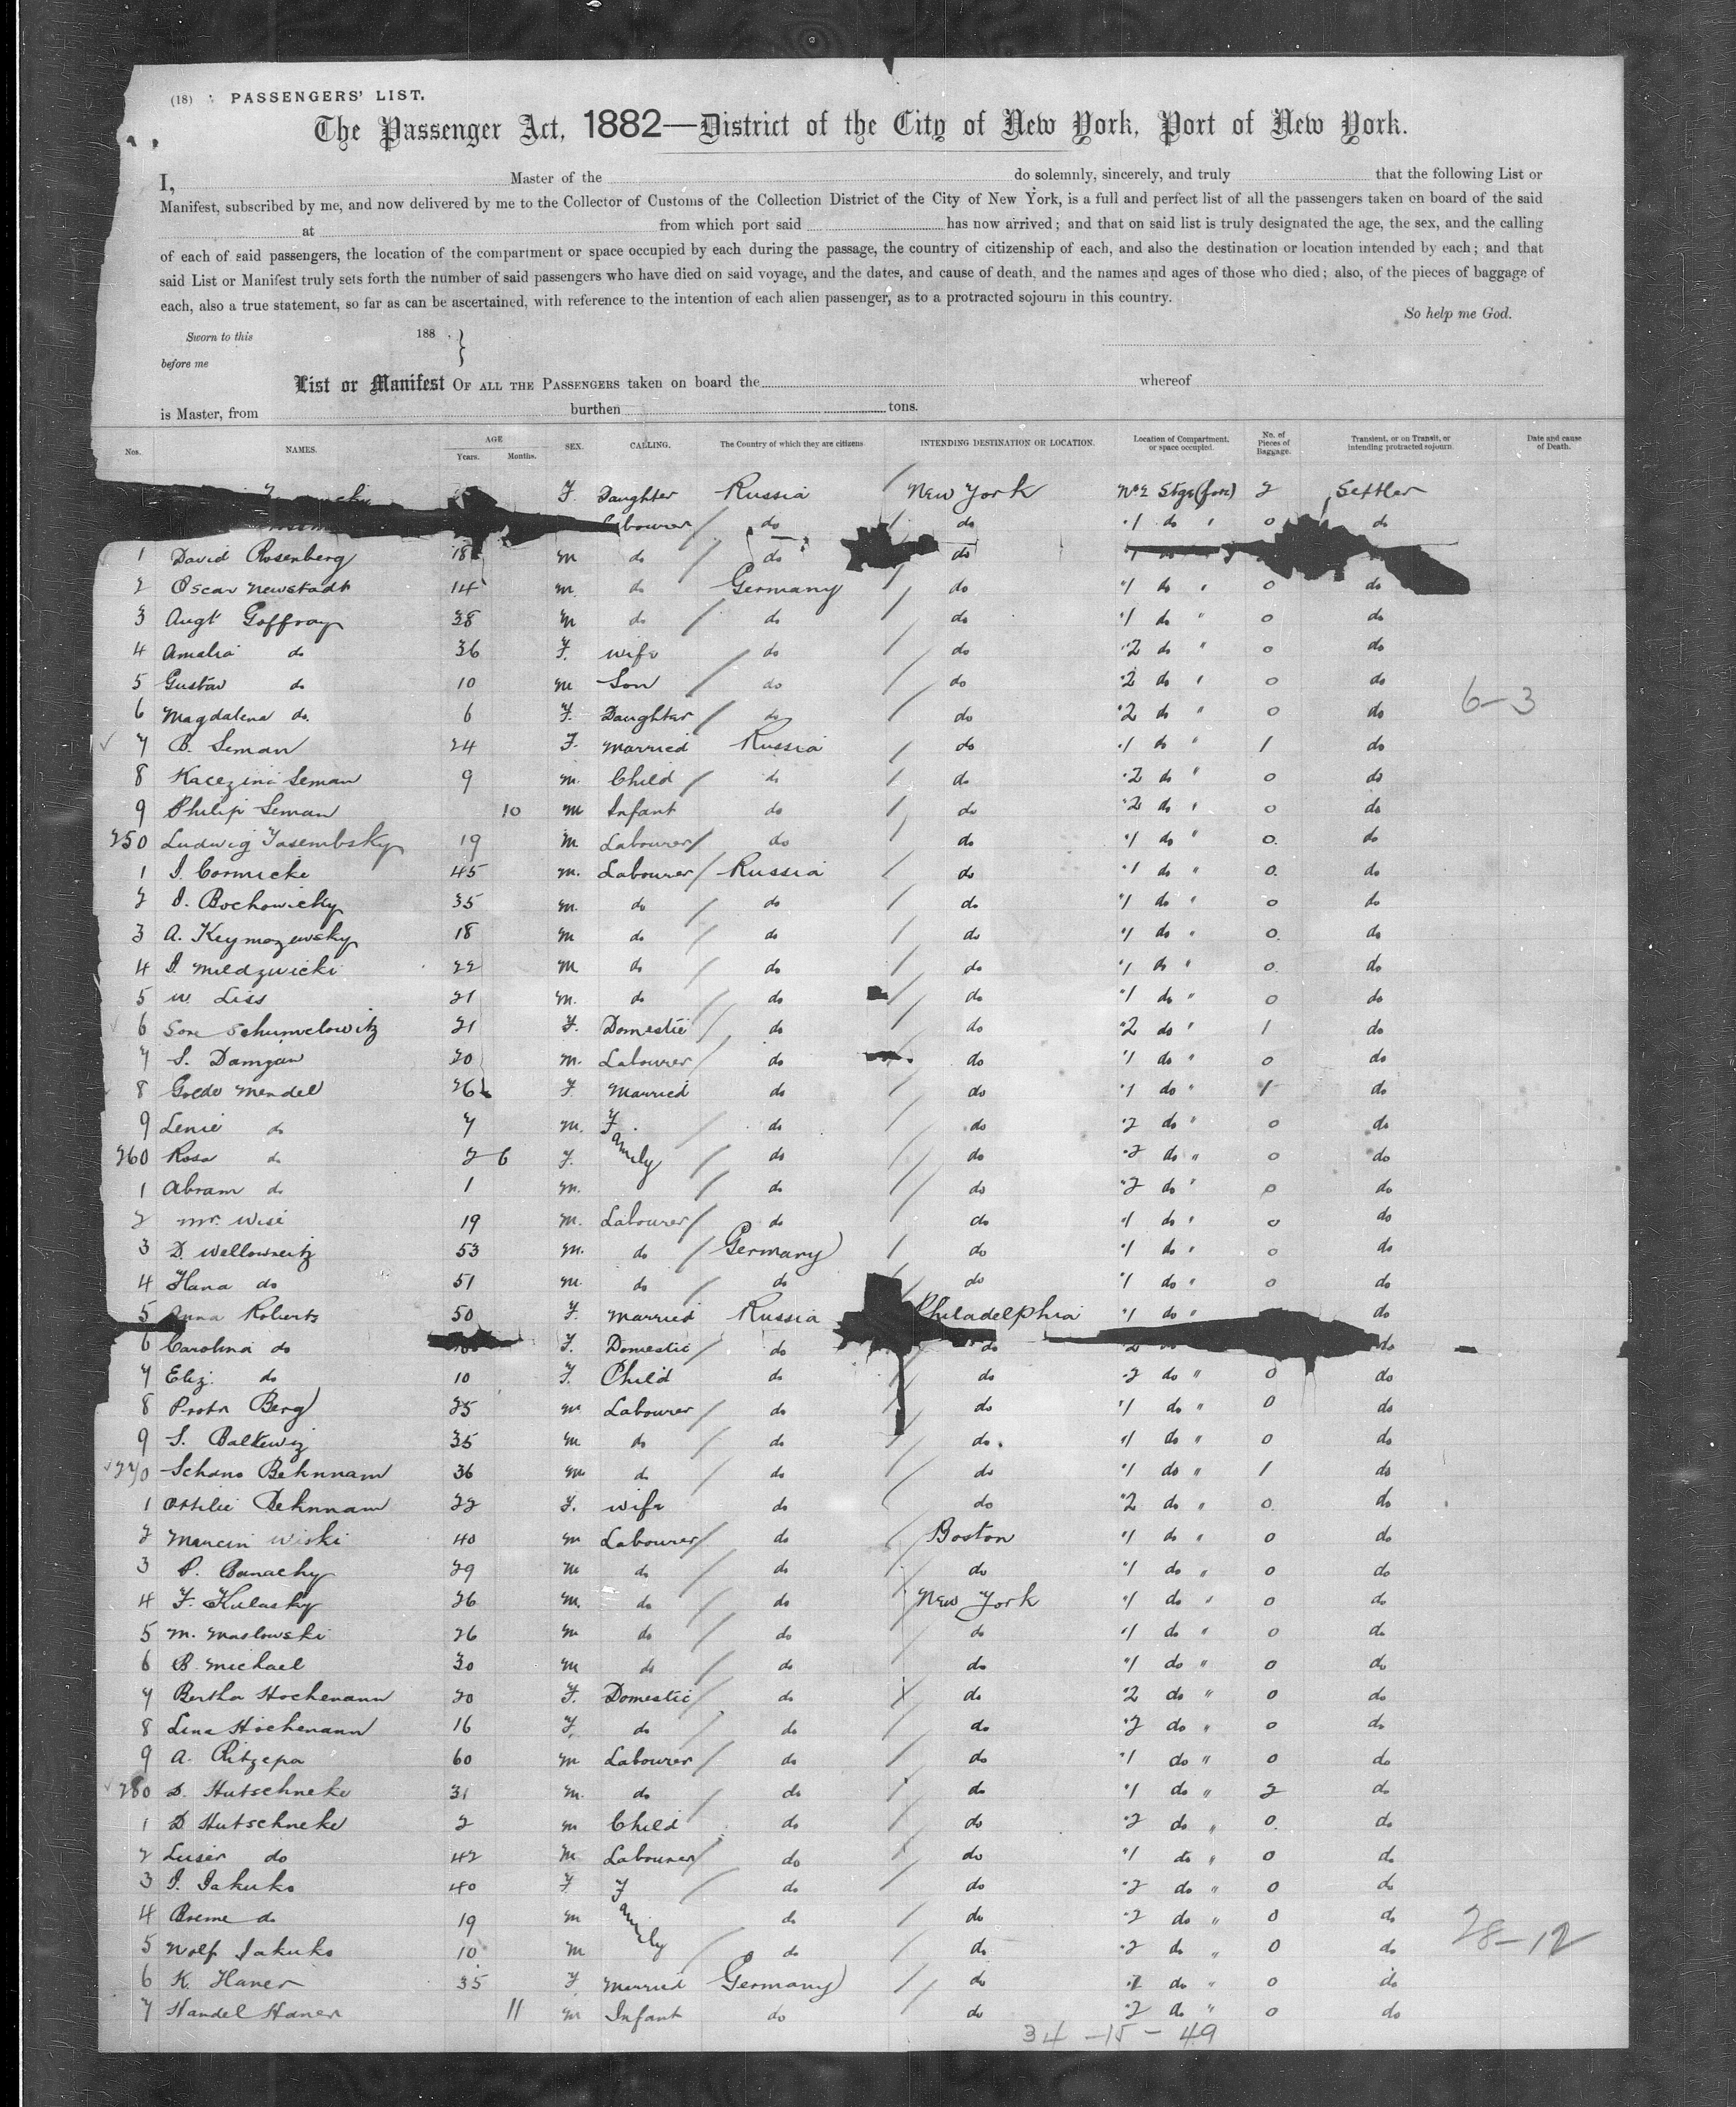 (18) PASSENGERS' LIST.
The Passenger Act, 1882—District of the City of New York, Port of New York.
I, Master of the do solemnly, sincerely, and truly that the following List or
Manifest, subscribed by me, and now delivered by me to the Collector of Customs of the Collection District of the City of New York, is a full and perfect list of all the passengers taken on board of the said
at from which port said has now arrived; and that on said list is truly designated the age, the sex, and the calling
of each of said passengers, the location of the compartment or space occupied by each during the passage, the country of citizenship of each, and also the destination or location intended by each; and that
said List or Manifest truly sets forth the number of said passengers who have died on said voyage, and the dates, and cause of death, and the names and ages of those who died; also, of the pieces of baggage of
each, also a true statement, so far as can be ascertained, with reference to the intention of each alien passenger, as to a protracted sojourn in this country.
So help me God.
Sworn to this 188 . }
before me
List or Manifest OF ALL THE PASSENGERS taken on board the whereof
is Master, from burthen tons.
Nos. NAMES. AGE Years. Months. SEX. CALLING. The Country of which they are citizens. INTENDING DESTINATION OR LOCATION. Location of Compartment, or space occupied. No. of Pieces of Baggage. Transient, or on Transit, or intending protracted sojourn. Date and cause of Death.
F. Daughter Russia New York No 2 Stge (fore) 2 Settler
do do 1 do " 0 do
1 David Rosenberg 18 m do do do do
2 Oscar Newstadt 14 m. do Germany do 1 do " 0 do
3 Augt Goffroy 38 m do do do 1 do " 0 do
4 Amalia do 36 F. wife do do 2 do " 0 do
5 Gustav do 10 m Son do do 2 do " 0 do
6 Magdalena do. 6 F. Daughter do do 2 do " 0 do 6-3
7 B. Seman 24 F. Married Russia do 1 do " 1 do
8 Kacezina Seman 9 m. Child do do 2 do " 0 do
9 Philip Seman 10 m Infant do do 2 do " 0 do
250 Ludwig Jasembsky 19 m Labourer do do 1 do " 0. do
1 I. Cormicke 45 m. Labourer Russia do 1 do " 0. do
2 I. Bochowicky 35 m. do do do 1 do " 0 do
3 A. Keymozewsky 18 m do do do 1 do " 0. do
4 I. Mildzwicki 22 m do do do 1 do " 0. do
5 W. Liss 21 m. do do do 1 do " 0 do
6 Sore Schumelowitz 21 F. Domestic do do 2 do " 1 do
7 S. Damzan 20 m. Labourer do do 1 do " 0 do
8 Golde Mendel 26 F Married do do 1 do " 1 do
9 Lenie do 7 m. Family do do 2 do " 0 do
260 Rosa do 2 6 F. do do 2 do " 0 do
1 Abram do 1 m. do do 2 do " 0 do
2 Mr. Wise 19 m. Labourer do do 1 do " 0 do
3 D. Wellowneitz 53 m. do Germany do 1 do " 0 do
4 Hana do 51 m do do do 1 do " 0 do
5 Anna Roberts 50 F. Married Russia Philadelphia 1 do " do
6 Carolina do F. Domestic do do do
7 Eliz. do 10 F. Child do do 2 do " 0 do
8 Protr Berg 25 m Labourer do do 1 do " 0 do
9 S. Balkewiz 35 m do do do. 1 do " 0 do
270 Schano Behnnam 36 m do do do 1 do " 1 do
1 Ottilie Behnnam 22 F. wife do do 2 do " 0. do
2 Marcin Wiski 40 m Labourer do Boston 1 do " 0 do
3 P. Banachy 29 m do do do 1 do " 0 do
4 F. Kulasky 26 m. do do New York 1 do " 0 do
5 M. Maslowski 26 m do do do 1 do " 0 do
6 B. Michael 30 m do do do 1 do " 0 do
7 Bertha Hochenann 20 F. Domestic do do 2 do " 0 do
8 Lina Hochenann 16 F. do do do 2 do " 0 do
9 A. Ritzepa 60 m Labourer do do 1 do " 0 do
280 D. Hutschneke 31 m. do do do 1 do " 2 do
1 D Hutschneke 2 m Child do do 2 do " 0. do
2 Luser do 42 m Labourer do do 1 do " 0 do
3 I. Jakuko 40 F Family do do 2 do " 0 do
4 Breme do 19 m do do 2 do " 0 do 28-12
5 Wolf Jakuko 10 m do do 2 do " 0 do
6 K. Haner 35 F Married Germany do 2 do " 0 do
7 Handel Haner 11 m Infant do do 2 do " 0 do
34 - 15 - 49